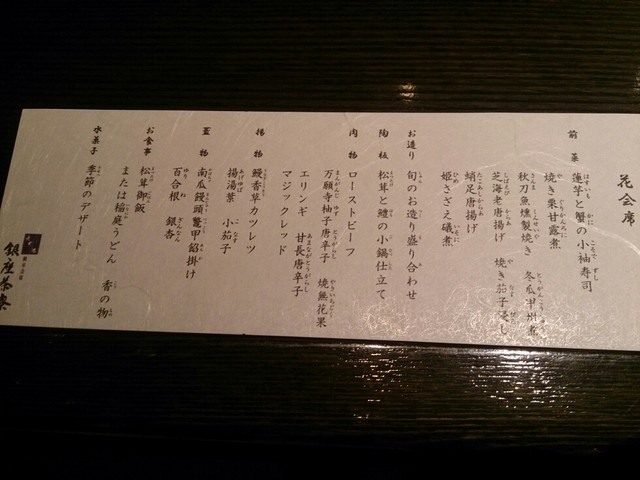 花会席
前菜 蓮芋と蟹の小袖寿司
焼き栗甘露煮
秋刀魚燻製焼き 冬瓜甲州煮
芝海老唐揚げ 焼き茄子浸し
蛸足唐揚げ
姫さざえ磯煮
お造り 旬のお造り盛り合わせ
陶板 松茸と鱧の小鍋仕立て
肉物 ローストビーフ
万願寺柚子唐辛子 焼無花果
エリンギ 甘長唐辛子
マジックレッド
揚物 鰻香草カツレツ
揚湯葉 小茄子
蓋物 南瓜饅頭鼈甲餡掛け
百合根 銀杏
お食事 松茸御飯
または稲庭うどん 香の物
水菓子 季節のデザート
銀座茶寮